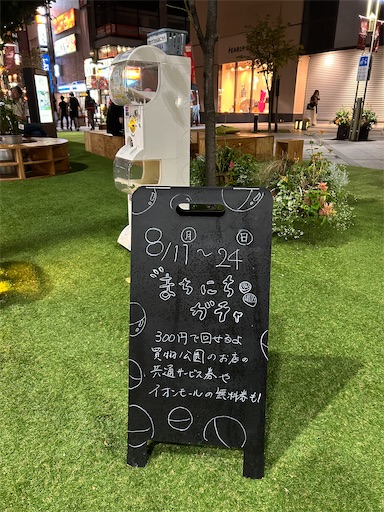 8/11㊊～24㊐
まちにち
ガチャ
300円で回せるよ
買物公園のお店の
共通サービス券や
イオンモールの無料券も!